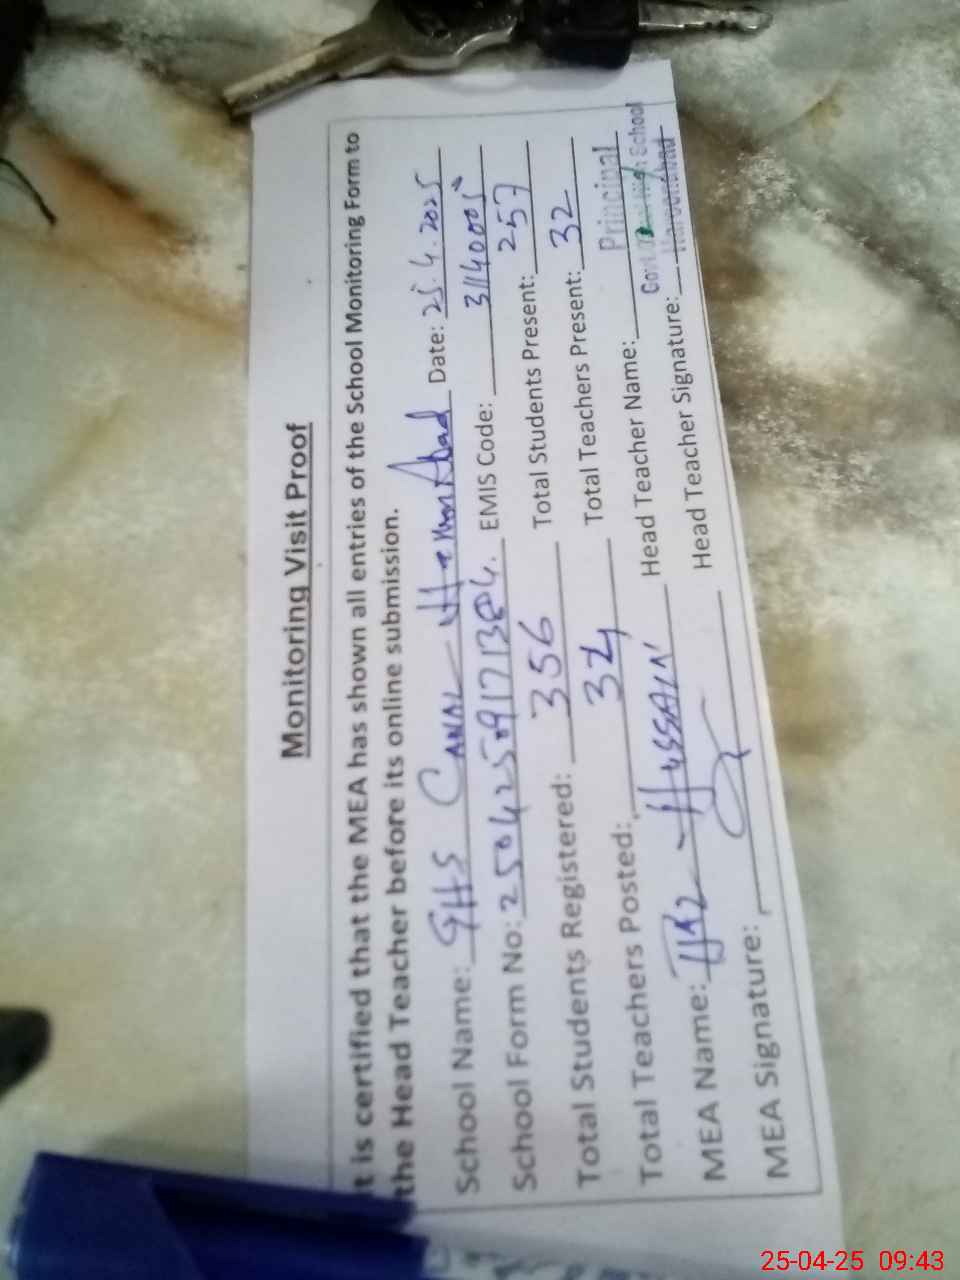 Monitoring Visit Proof
It is certified that the MEA has shown all entries of the School Monitoring Form to
the Head Teacher before its online submission.
School Name: GHS CANAL Date: 25.4.2025
School Form No: EMIS Code: 31140005
Total Students Registered: 356 Total Students Present: 257
Total Teachers Posted: 34 Total Teachers Present: 32
MEA Name: HUSSAIN Head Teacher Name: Principal
MEA Signature: Head Teacher Signature:
Govt. High School
Haroonabad
25-04-25 09:43